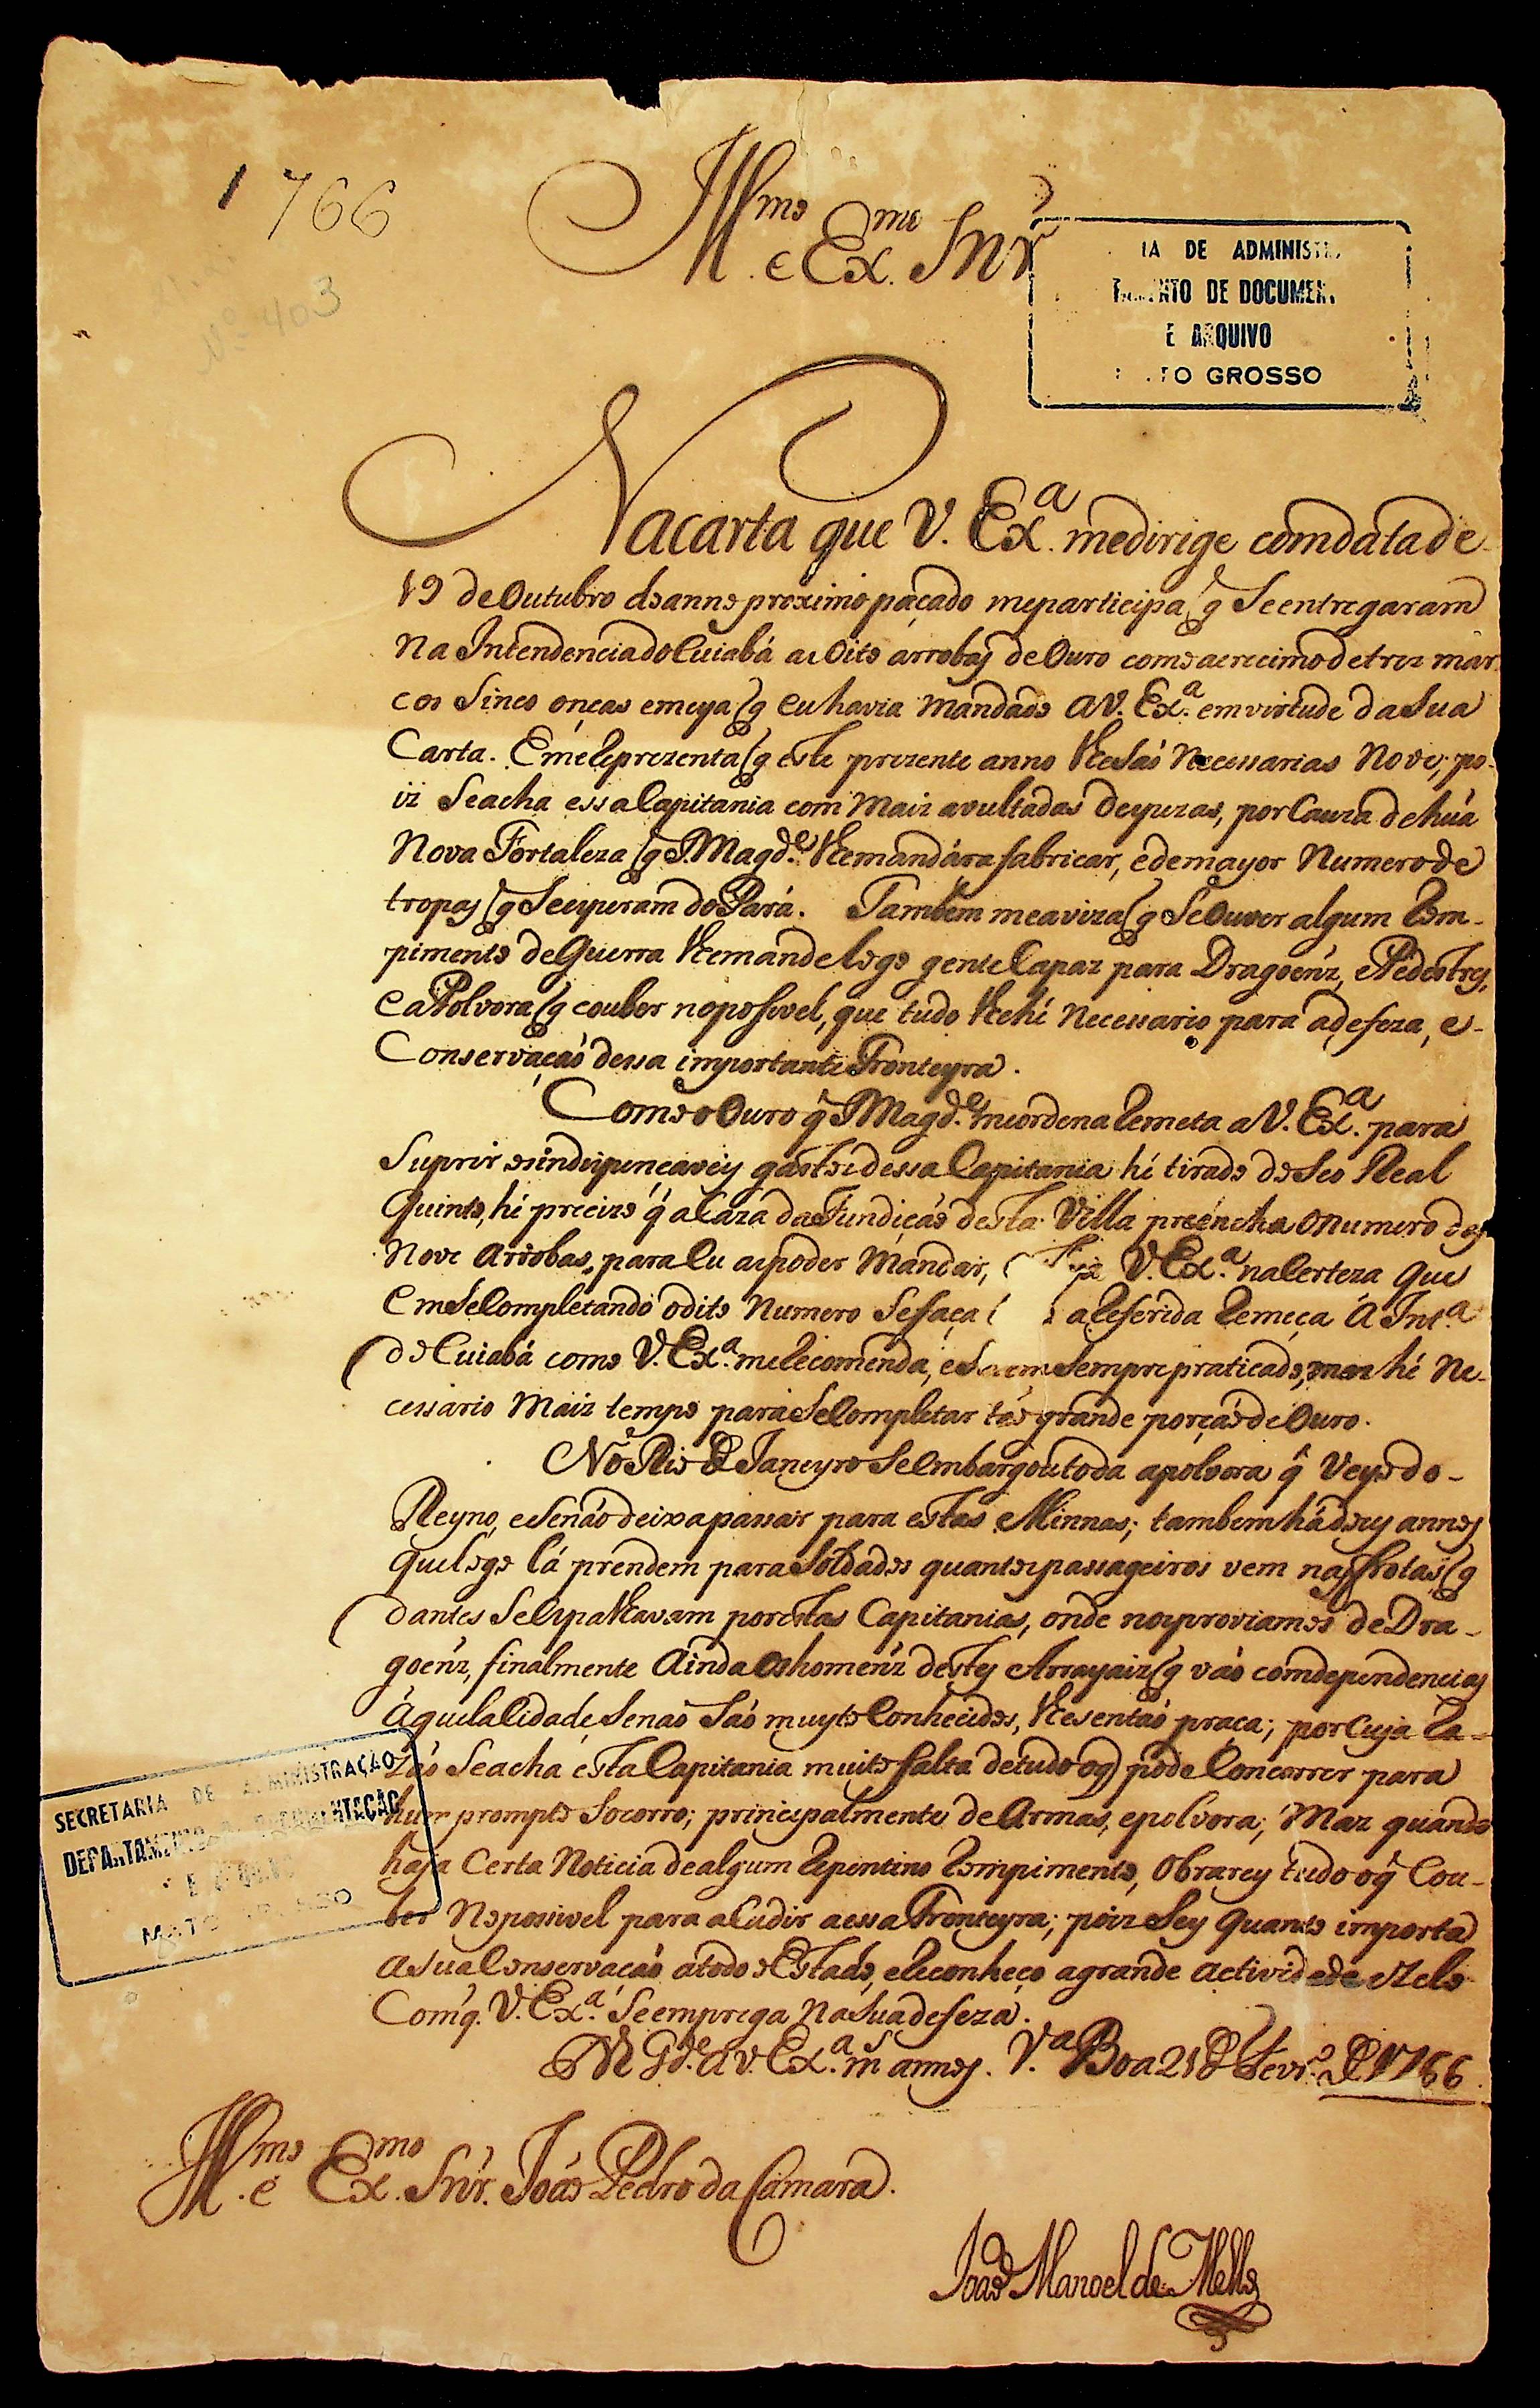 1766
Nº 403
Illmo e Exmo Snr
IA DE ADMINIST
NTO DE DOCUMEN
E ARQUIVO
TO GROSSO
Nacarta que V. Exa. medirige comdatade
19 deOutubro doanno proximo paçado meparticipa q̃ Seentregaram
Na IntendenciadoCuiabá as Oito arrobas deOuro como acrecimo detrez mar
cos Sinco onças emeya q̃ euhavia Mandado aV. Exa. emvirtude daSua
Carta. EmeReprezenta q̃ este prezente anno lheSaó Necessarias Nove, po-
is Seacha essaCapitania com Maiz avultadas despezas, porCauza dehúa
Nova Fortaleza q̃ S.Magde. lhemandára fabricar, edemayor Numerode
tropas q̃ Seesperam doPará. Tambem meaviza q̃ SeOuver algum Rom-
pimento deGuerra lhemandelogo genteCapaz para Dragoenz, ePedestres,
eaPolvora q̃ couber noposivel, que tudo lhehé Necessario para adefeza, e-
Conservaçaó dessa importante Fronteyra.
ComooOuro q̃ SMagde. meordena Remeta aV. Exa. para
Suprir osindispençaveis gastosdessa Capitania hé tirado doSeo Real
Quinto, hé precizo q̃ aCaza daFundiçaó desta Villa preencha oNumero das
Nove Arrobas, paraEu aspoder Mandar, V. Exa. naCerteza que
EmSeCompletando odito Numero Sefaça aReferida Remeça á Inta.
doCuiabá como V. Exa. meRecomenda, e Sempre praticado, maz hé Ne-
cessario Maiz tempo paraSeCompletar taó grande porçaó deOuro.
No Rio de Janeyro SeEmbargou toda apolvora q̃ Veyo do-
Reyno, eSenaó deixa passar para estas Minnas; tambem há dous annos
quelogo lá prendem paraSoldados quantospassageiros vem nasfrotas, q̃
dantes SeEspalhavam porestas Capitanias, onde nosproviamos de Dra-
goenz, finalmente Ainda Oshomenz destes Arrayaiz q̃ vaó comdependencias
áquelaCidade Senaó Saó muyto Conhecidos, lhesentaó praça; porCuja Ra-
zaó Seacha esta Capitania muito falta detudo oq̃ pode Concorrer para
hum prompto Socorro; principalmente deArmas, epolvora; Maz quando
haja Certa Noticia dealgum Repentino Rompimento, Obrarey tudo oq̃ Cou-
ber Nopossivel para aCudir aessa Fronteyra; poiz Sey quanto importa
aSuaConservacaó atodo oEstado, eReconheço agrande actividade eZelo
Comq̃. V. Exa. Seemprega NaSuadefeza.
Ds Gde. aV. Exa. ms annos. Va. Boa 21 de Fevro. de 1766
Illmo e Exmo Snr. Joaó Pedro da Camara.
Joaó Manoel de Mello
SECRETARIA DE ADMINISTRAÇAO
DEPARTAMENTO DE DOCUMENTAÇAO
E ARQUIVO
MATO GROSSO